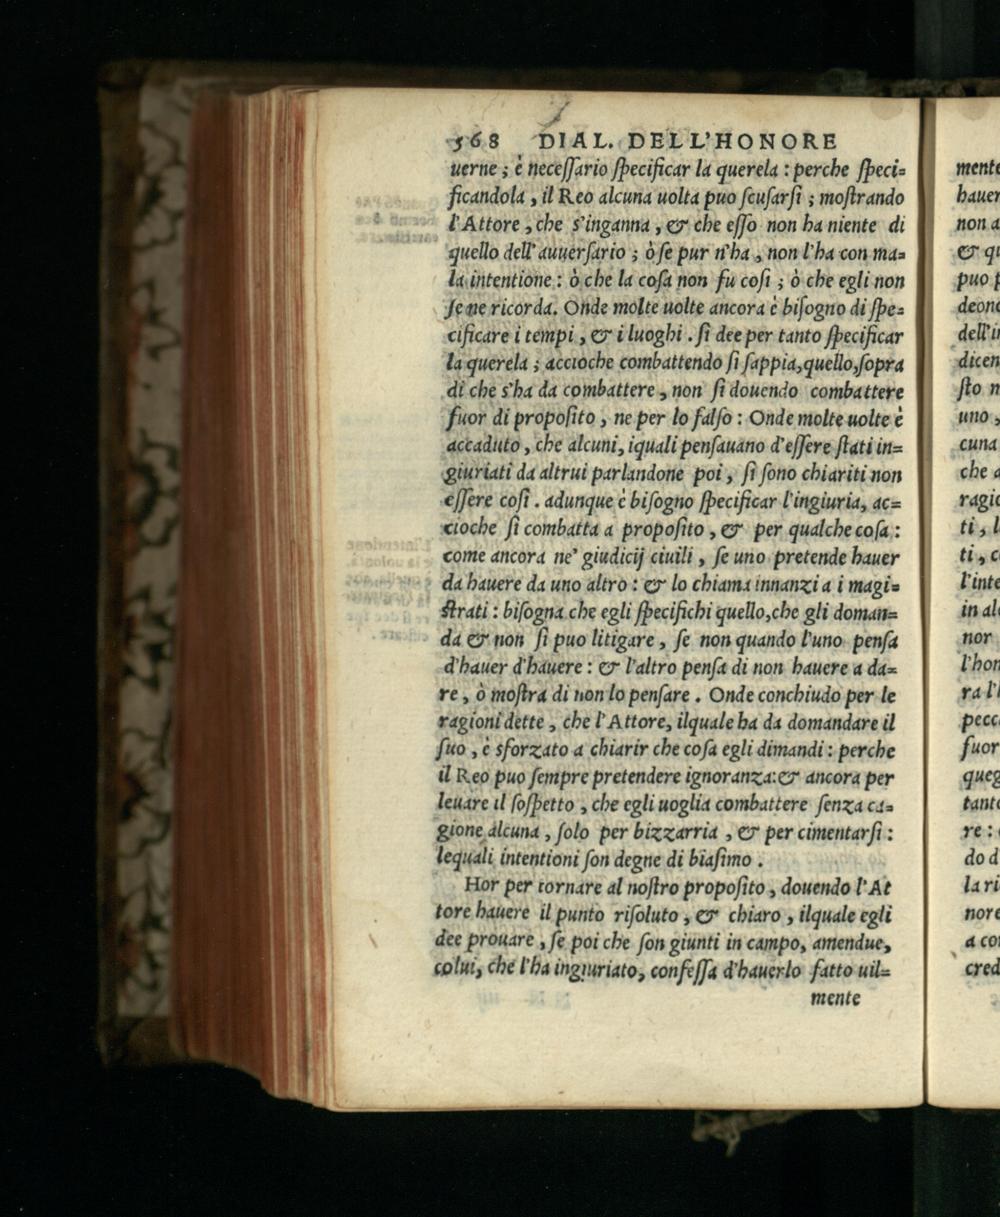 568 DIAL. DELL'HONORE
uerne ; è neceſſario ſpecificar la querela : perche ſpeci=
ficandola , il Reo alcuna uolta puo ſcuſarſi ; moſtrando
l'Attore , che s'inganna , & che eſſo non ha niente di
quello dell'auuerſario ; ò ſe pur n'ha , non l'ha con ma=
la intentione : ò che la coſa non fu coſi ; ò che egli non
ſe ne ricorda. Onde molte uolte ancora è biſogno di ſpe=
cificare i tempi , & i luoghi . ſi dee per tanto ſpecificar
la querela ; accioche combattendo ſi ſappia,quello,ſopra
di che s'ha da combattere , non ſi douendo combattere
fuor di propoſito , ne per lo falſo : Onde molte uolte è
accaduto , che alcuni, iquali penſauano d'eſſere ſtati in=
giuriati da altrui parlandone poi , ſi ſono chiariti non
eſſere coſi . adunque è biſogno ſpecificar l'ingiuria, ac=
cioche ſi combatta a propoſito , & per qualche coſa :
come ancora ne' giudicij ciuili , ſe uno pretende hauer
da hauere da uno altro : & lo chiama innanzi a i magi=
ſtrati : biſogna che egli ſpecifichi quello,che gli doman=
da & non ſi puo litigare , ſe non quando l'uno penſa
d'hauer d'hauere : & l'altro penſa di non hauere a da=
re , ò moſtra di non lo penſare . Onde conchiudo per le
ragioni dette , che l'Attore, ilquale ha da domandare il
ſuo , è sforzato a chiarir che coſa egli dimandi : perche
il Reo puo ſempre pretendere ignoranza:& ancora per
leuare il ſoſpetto , che egli uoglia combattere ſenza ca=
gione alcuna , ſolo per bizzarria , & per cimentarſi :
lequali intentioni ſon degne di biaſimo .
Hor per tornare al noſtro propoſito , douendo l'At
tore hauere il punto riſoluto , & chiaro , ilquale egli
dee prouare , ſe poi che ſon giunti in campo, amendue,
colui, che l'ha ingiuriato, confeſſa d'hauerlo fatto uil=
mente
mente
hauer
non a
& qu
puo p
deono
dell'in
dicen
ſto n
uno ,
cuna
che a
ragio
ti , l
ti , c
l'inte
in al
nor
l'hon
ra l'
pecc
fuor
queg
tanto
re :
do d
la ri
nore
a co
cred